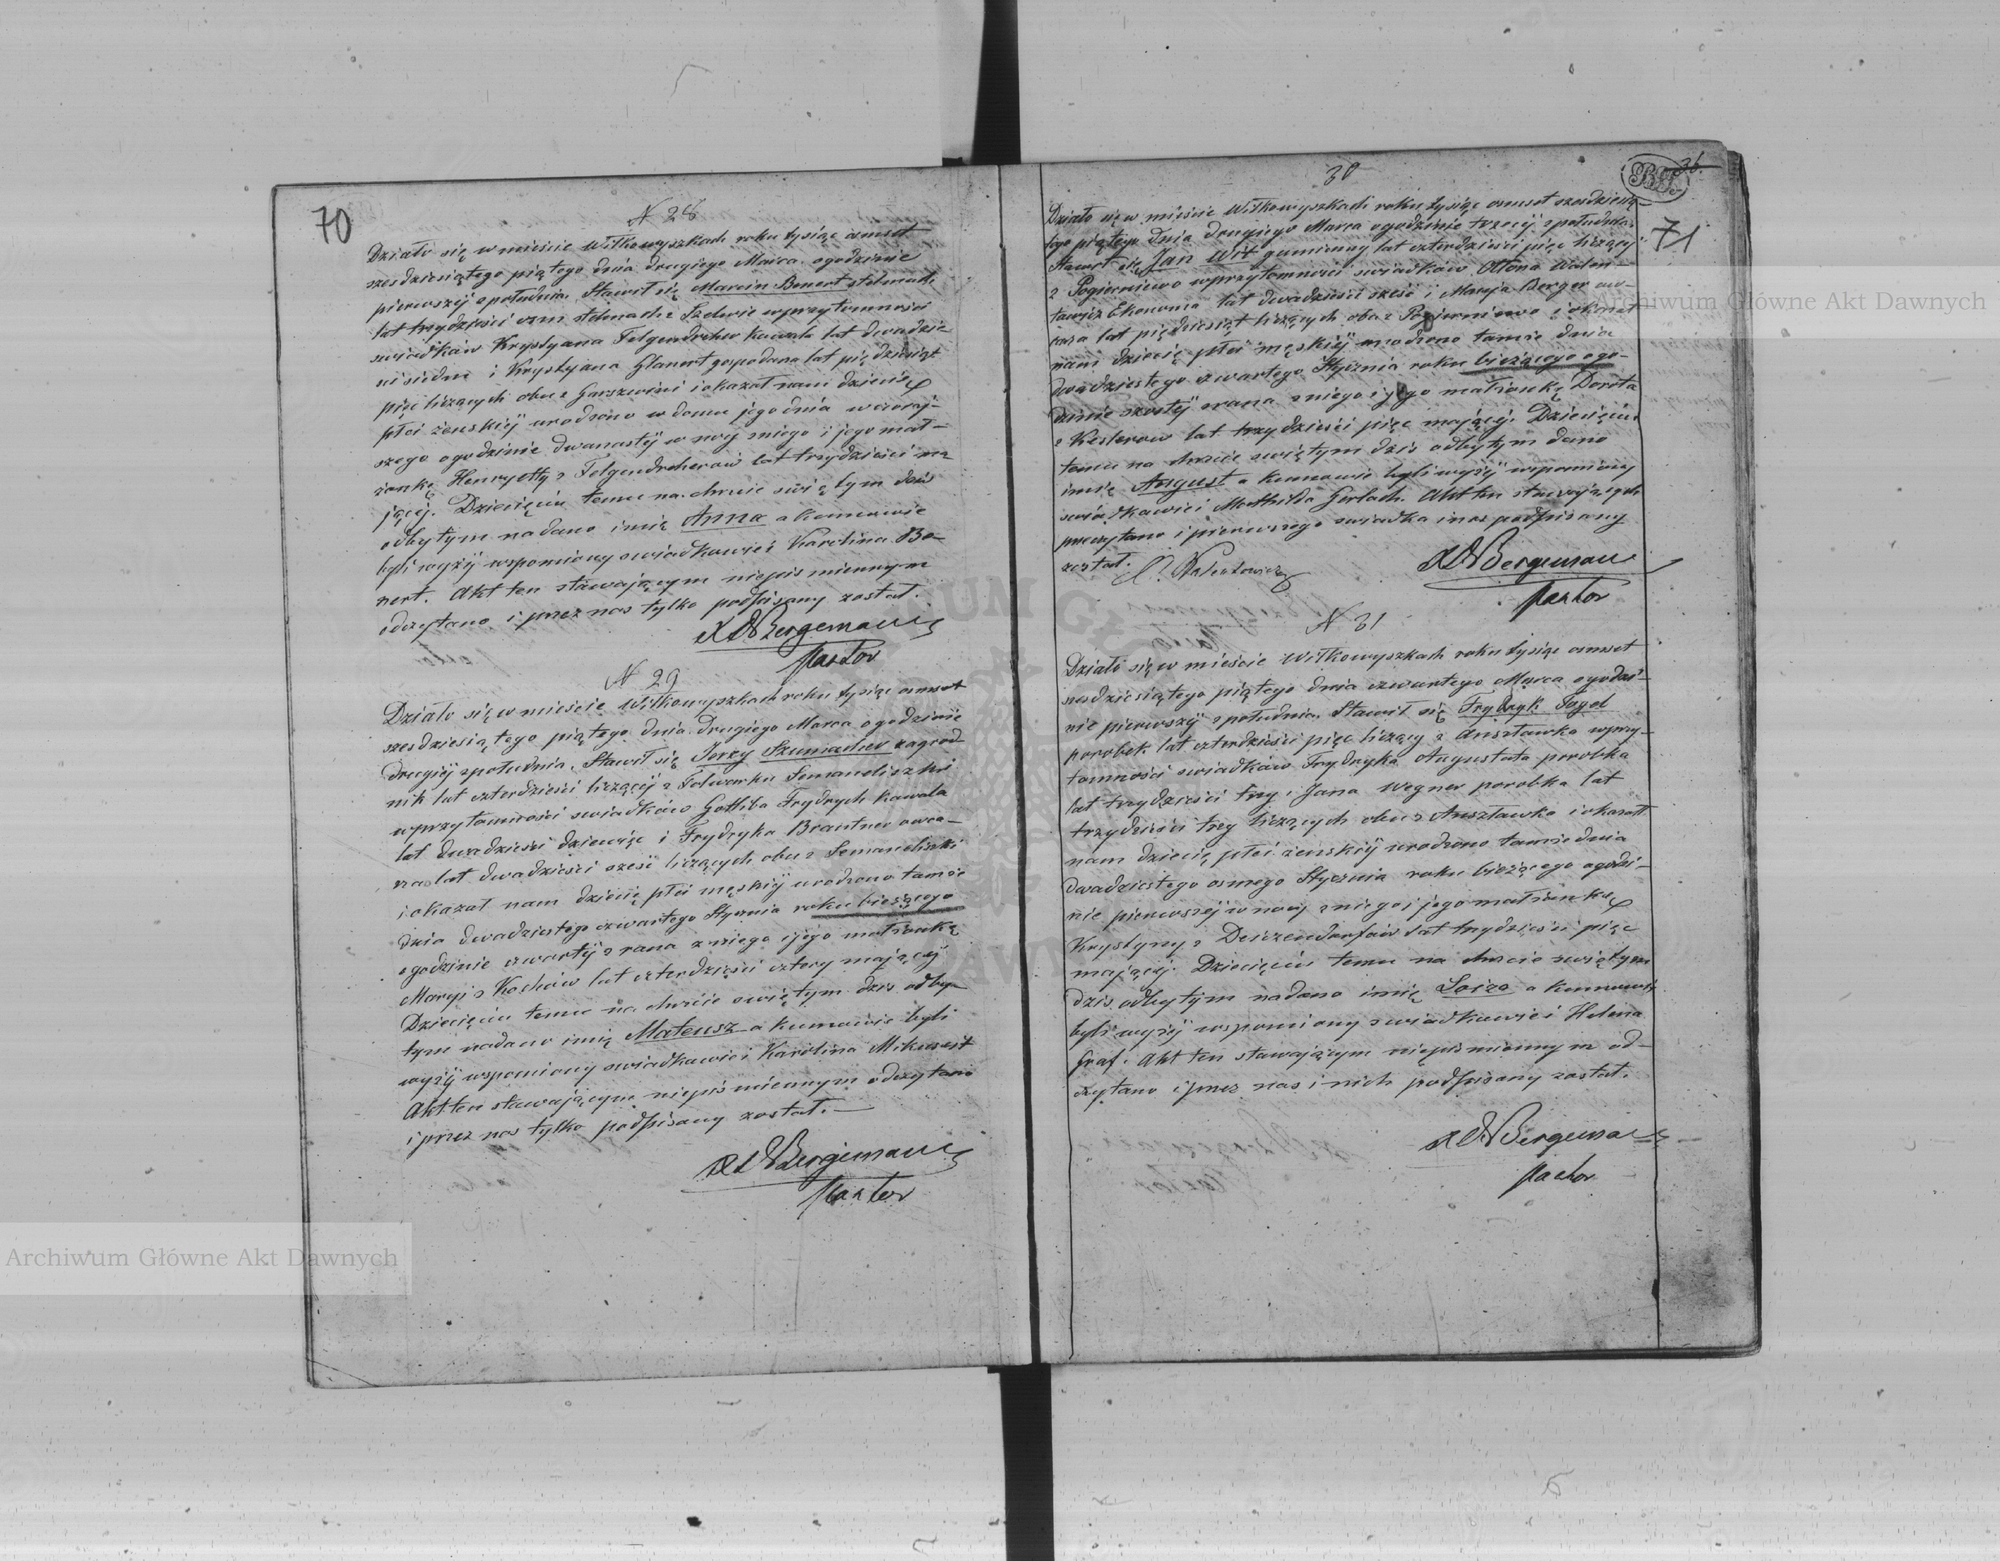 70
N 28
Działo się w mieście Wiłkowyszkach roku tysiąc osmset
szesdziesiątego piątego dnia drugiego Marca ogodzinie
pierwszéj zpołudnia. Stawił się Marcin Benert stelmach
lat trzydzieści osm stelmach z wprzytomności
swiadków Krystyana Felgendreher Kowala lat dwadzie
sci siedm i Krystyana Glanert gospodarza lat piędziesiąt
pięć liczących obu z i okazał nam dziecię
płci żeńskiéj urodzone w domu jego dnia wczoraj-
szego ogodzinie dwanastéj w nocy zniego i jego mał-
żonkę Henryetty z Felgendreherow lat trzydzieści ma
jącéj. Dziecięciu temu na chrzcie swiętym dziś
odbytym nadano imię Anna a kumowie
byli wyżéj wspomiony swiadkowie i Karolina Be-
nert. Akt ten stawającym niepismiennym
odczytano i przez nas tylko podpisany został.
Bergemann
Pastor
N 29
Działo się w mieście Wiłkowyszkach roku tysiąc osmset
szesdziesiątego piątego dnia drugiego Marca ogodzinie
drugiéj zpołudnia. Stawił się Jerzy zagrod
nik lat czterdzieści liczącéj z Folwarku Semaneliszki
wprzytomności swiadków Gotliba Frydrych Kowala
lat dwadzieści dziewięć i Frydryka Brantner owca-
rza lat dwadzieści sześć liczących obu z Semaneliszki
i okazał nam dziecię płci męskiéj urodzono tamże
dnia dwadziestego czwartego Stycznia roku bieżącego
ogodzinie czwartéj z rana z niego i jego małżonkę
Maryi z Kochów lat czterdzieści cztery mającéj
Dziecięciu temu na chrzcie swiętym dzis odby-
tym nadano imię Mateusz a kumowie byli
wyżéj wspomiony swiadkowie i Karolina
Akt ten stawającym niepismiennym odczytano
i przez nas tylko podpisany został.—
Bergemann
Pastor
30
36.
71
Działo się w mieście Wiłkowyszkach roku tysiąc osmset szesdziesią-
tego piątego dnia drugiego Marca ogodzinie trzeciéj zpołudnia.
Stawił się Jan Wit gumienny lat czterdzieści pięć liczący
z Pogierniewo wprzytomności swiadków Ottona Walen-
towicz Ekonoma lat dwadzieści sześć i Mateja Berger ow-
czarza lat pięćdziesiąt liczących obu z Pogierniewo i okazał
nam dziecię płci męskiéj urodzono tamże dnia
dwadziestego czwartego Stycznia roku bieżącego ogo-
dzinie szostéj zrana zniego i jego małżonkę Dorota
z Keslerow lat trzydzieści pięć mającéj. Dziecięciu
temu na chrzcie swiętym dzis odbytym dano
imię August a kumowie byli wyżéj wspomiony
swiadkowie i Mathilda Gerlach. Akt ten stawających
przeczytano i pierwszego swiadka i nas podpisany
został. O. Walentowicz
Bergemann
Pastor
N 31
Działo się w mieście Wiłkowyszkach roku tysiąc osmset
szesdziesiątego piątego dnia czwartego Marca ogodzi-
nie pierwszéj zpołudnia. Stawił się Frydryk
porobek lat czterdzieści pięć liczący z Ansztawka wprzy-
tomności swiadków Frydryka Augustata porobka
lat trzydzieści trzy i Jana Wegner porobka lat
trzydzieści trzy liczących obu z Ansztawka i okazał
nam dziecię płci żenskiéj urodzono tamże dnia
dwadziestego osmego Stycznia roku bieżącego ogodzi-
nie pierwszéj w nocy zniego i jego małżonkę
Krystyny z lat trzydzieści pięć
mającéj. Dziecięciu temu na chrzcie swiętym
dzis odbytym nadano imię Loiza a kumowie
byli wyżéj wspomiony swiadkowie i Helena
Graf. Akt ten stawającym niepismiennym od-
czytano i przez nas i nich podpisany został.
Bergemann
Pastor
Archiwum Główne Akt Dawnych
Archiwum Główne Akt Dawnych